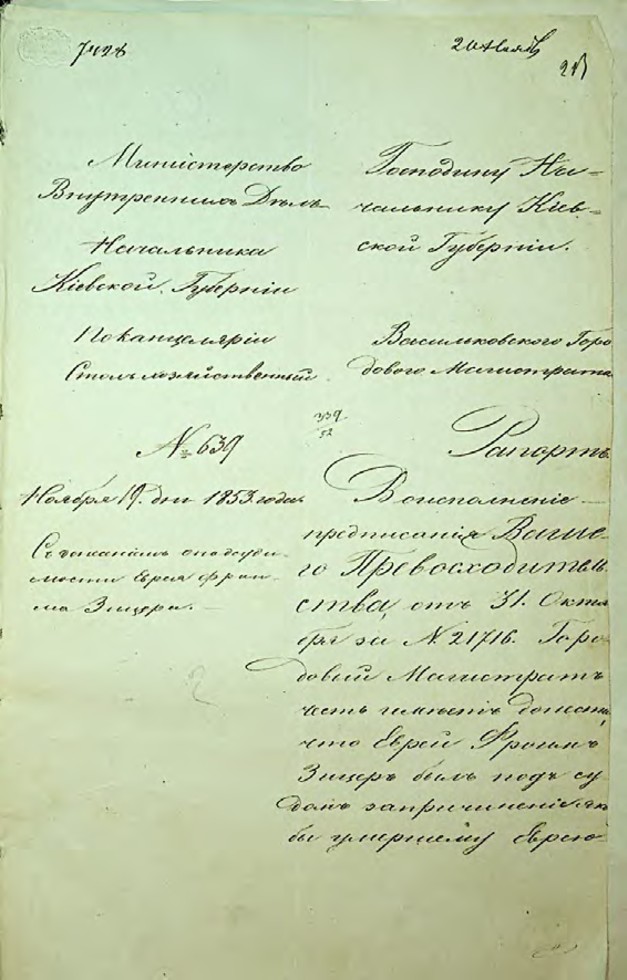 7428
20 Ноября
Министерство
Внутреннихъ Делъ
Начальника
Кіевской Губерніи
По канцеляріи
Столъ хозяйственный
№ 639
Ноября 19. дня 1853 года
Съ
Еврея Фрои-
ма Зицера.
Господину На=
чальнику Кіев=
ской Губерніи.
Васильковского Горо
дового Магистрата
339
52
Рапортъ
Во исполненіе
предписанія Ваше-
го Превосходитель
ства, отъ 31. Октя
бря за №. 21716. Горо
довый Магистратъ
честь имеетъ донести
что Еврей Фроимъ
Зицеръ былъ подъ су
домъ за причиненіе як
бы умершему Еврею